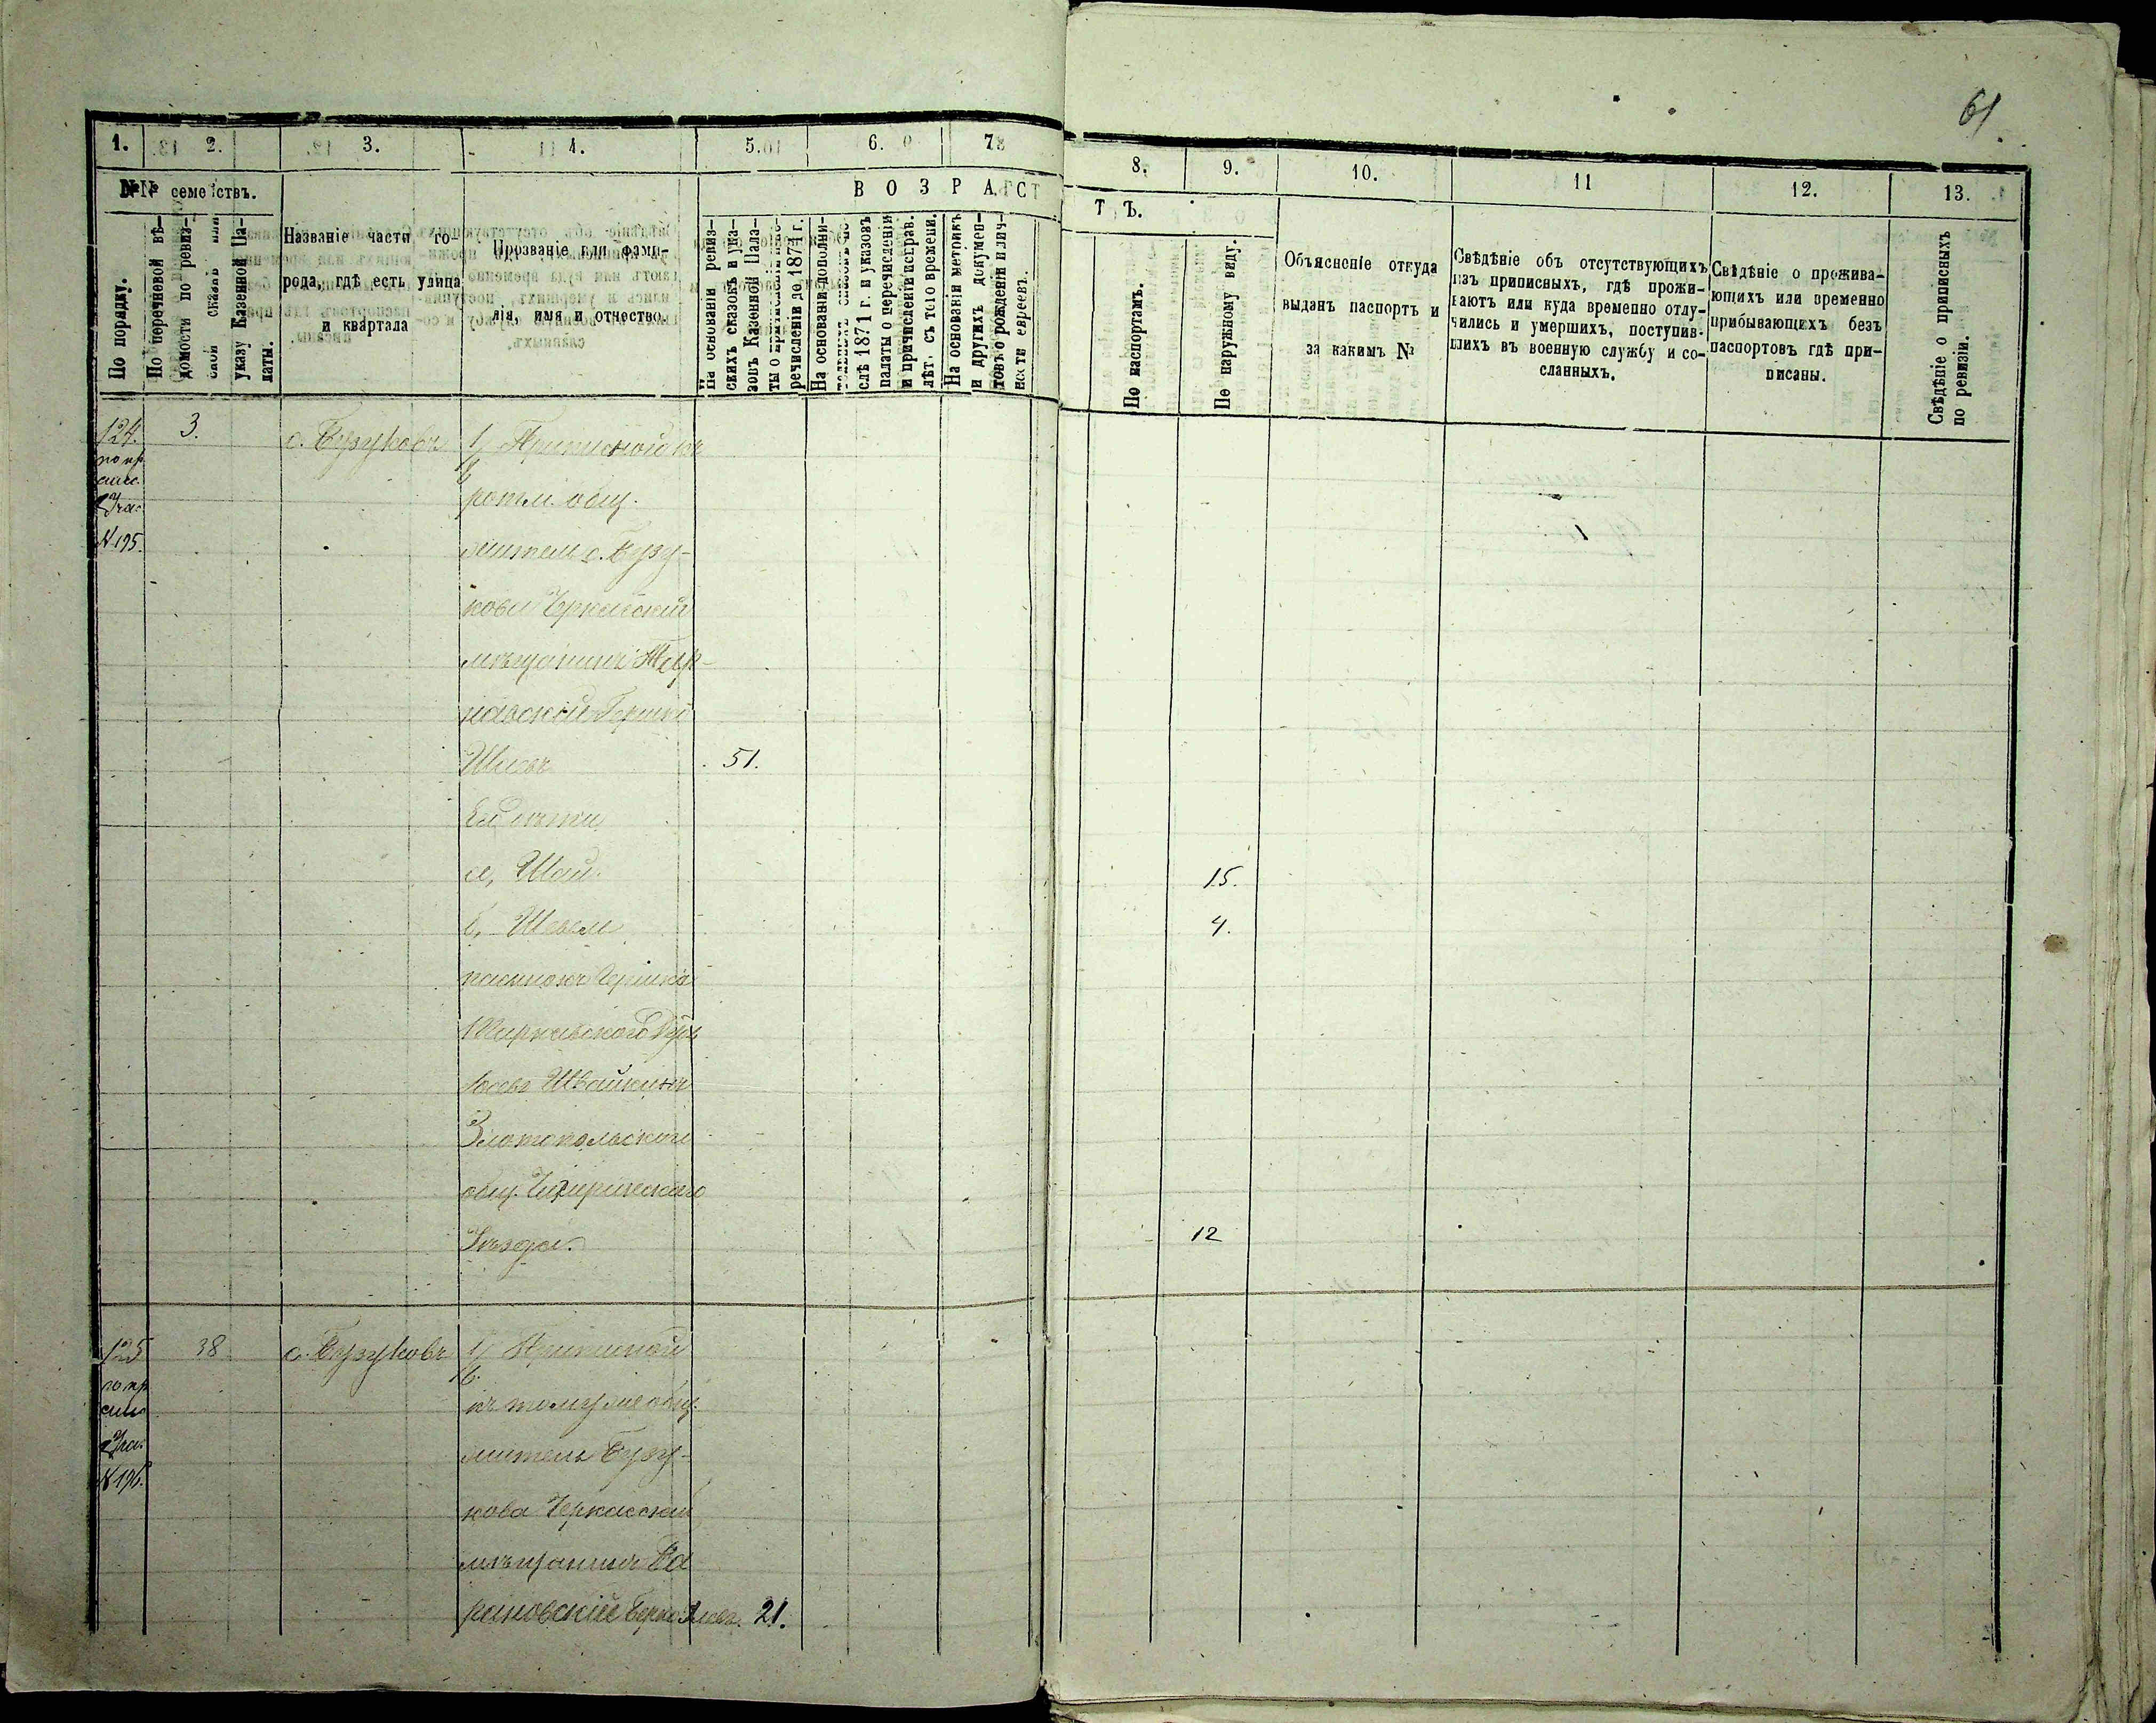 61
1. 2. 3. 4. 5. 6. 7.
8. 9. 10. 11 12. 13.
№№ семействъ.
ВОЗРАСТЪ.
По порядку.
По перечневой вѣдомости по ревизской сказкѣ или указу Казенной Палаты.
Названіе части города, гдѣ есть улица и квартала
Прозваніе или фамилія, имя и отчество.
На основаніи ревизскихъ сказокъ и указовъ Казенной Палаты о причисленіи и перечисленіи до 1874 г.
На основаніи дополнительныхъ списковъ послѣ 1871 г. и указовъ палаты о перечисленіи и причисленіи исправ. лѣт. съ того времени.
На основаніи метрикъ и другихъ документовъ о рожденіи и личности евреевъ.
По паспортамъ.
По наружному виду.
Объясненіе откуда
выданъ паспортъ и
за какимъ №
Свѣдѣніе объ отсутствующихъ
изъ приписныхъ, гдѣ прожи-
ваютъ или куда временно отлу-
чились и умершихъ, поступив-
шихъ въ военную службу и со-
сланныхъ.
Свѣдѣніе о прожива-
ющихъ или временно
прибывающихъ безъ
паспортовъ гдѣ при-
писаны.
Свѣдѣніе о приписныхъ по ревизіи.
124. 3. с. Бузуковъ 1/ Приписной къ
общ.
N 195. житель с. Бузу-
кова Черкасскій
мѣщанинъ
Гершко
51.
Его дѣти
а, 15.
б, 4.
пасынокъ Гершка
Швайкинъ
Златопольскаго
общ. Чигиринскаго
Уѣзда. 12
125 38 с. Бузуковъ 1/ Приписной
къ тому же общ.
житель Бузу-
N 196. кова Черкасскій
мѣщанинъ Ба
рановскій 21.